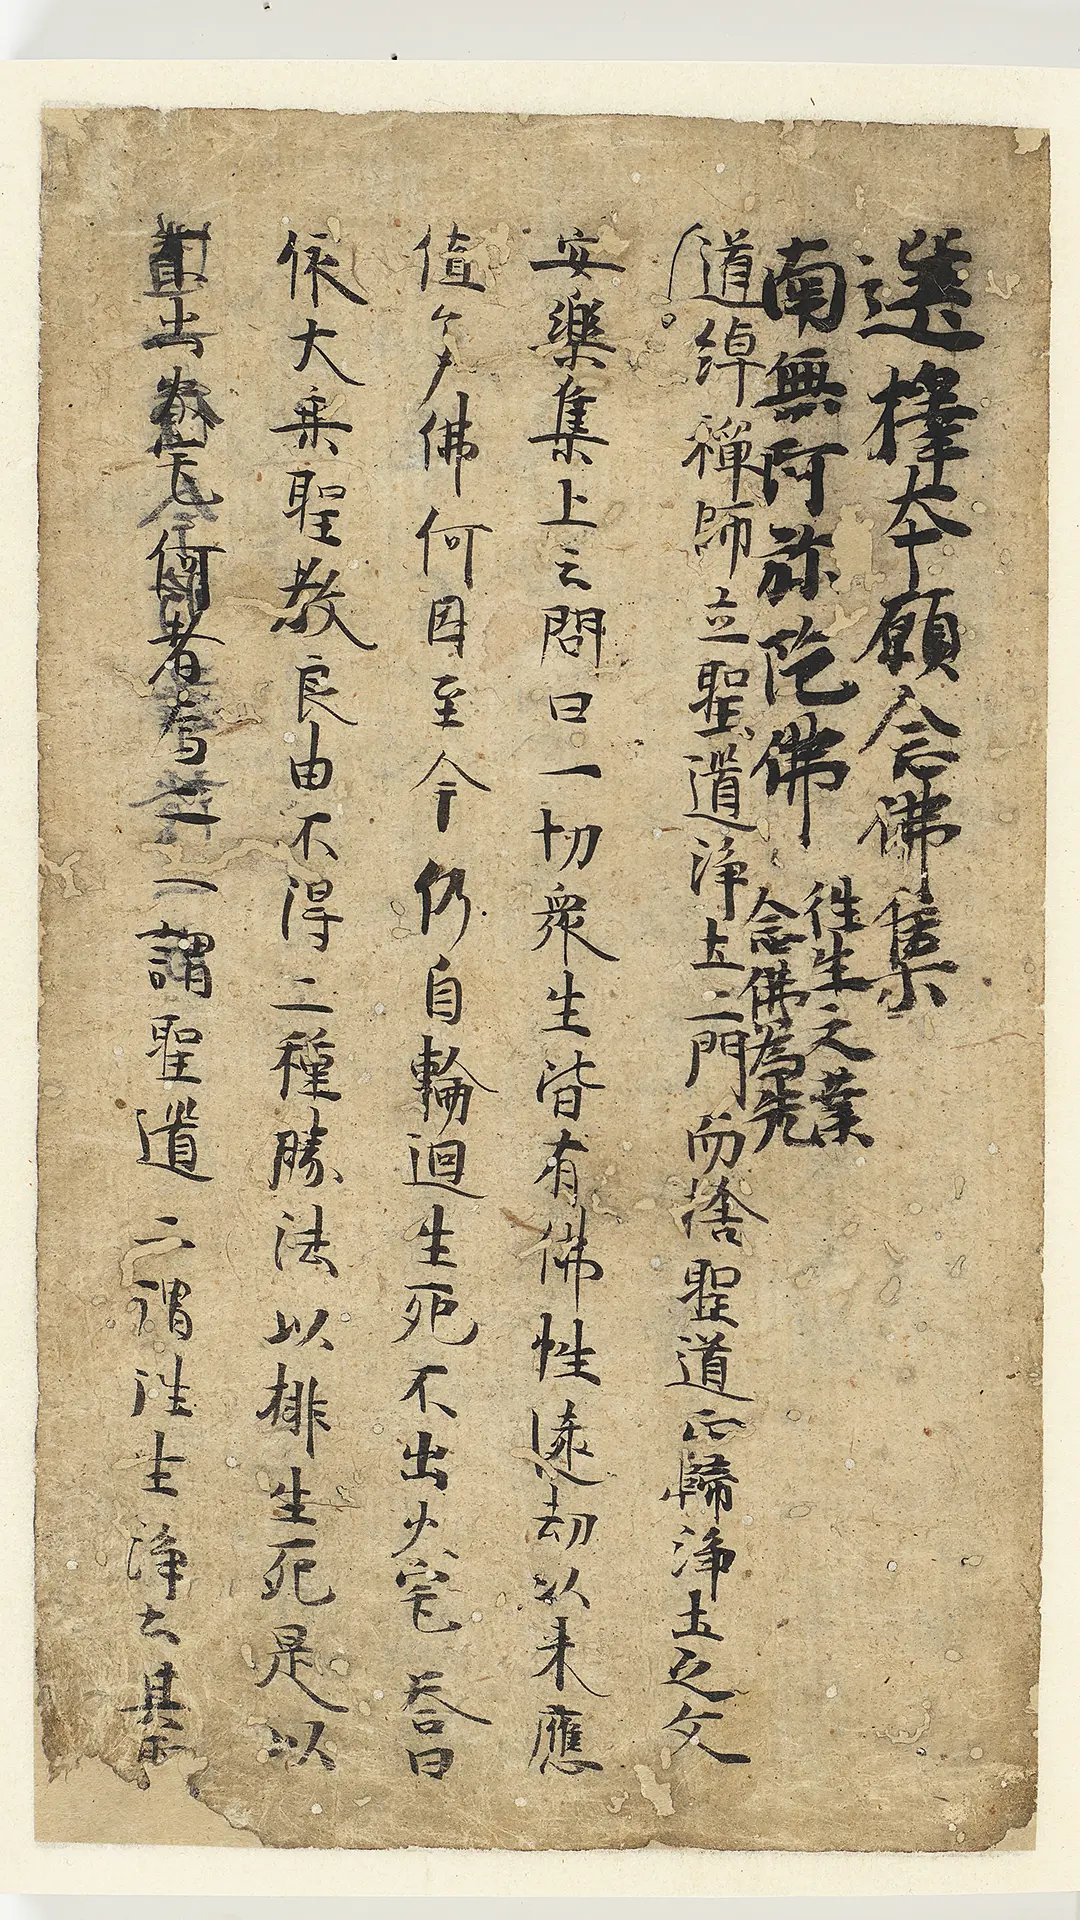 選擇夲願念佛集
南無阿弥陀佛
往生之業
念佛為先
道綽禅師立聖道浄土二門而捨聖道正歸浄土之文
安樂集上云問曰一切衆生皆有佛性遠劫以来應
值多佛何因至今仍自輪迴生死不出火宅 答曰
依大乗聖教良由不得二種勝法以排生死是以
出火宅何者為二一謂聖道二謂往生浄土其